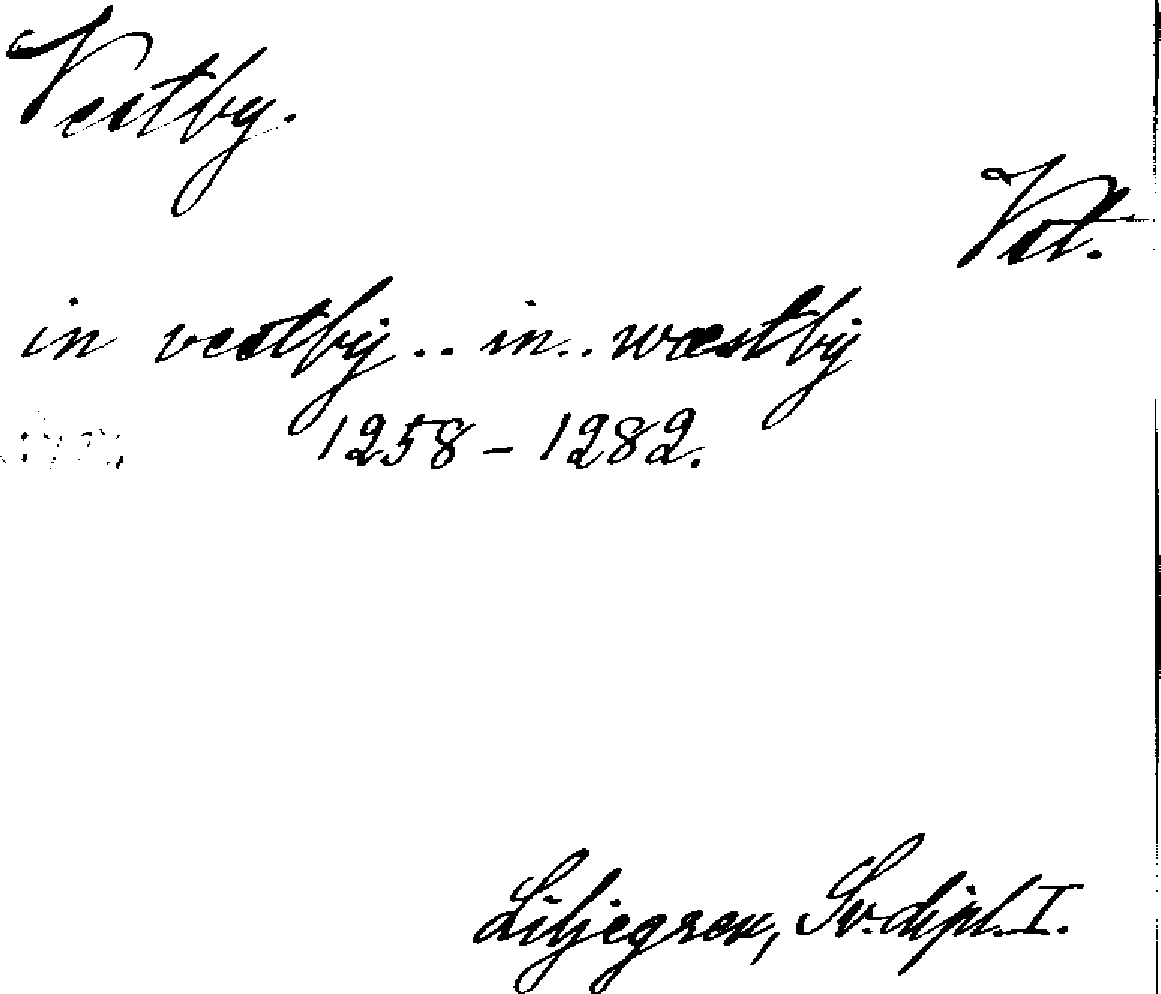 Vestby.
Vst.
in vestbij .. in .. wæstbij
1258 - 1282.
Liljegren, Sv. dipl. I.